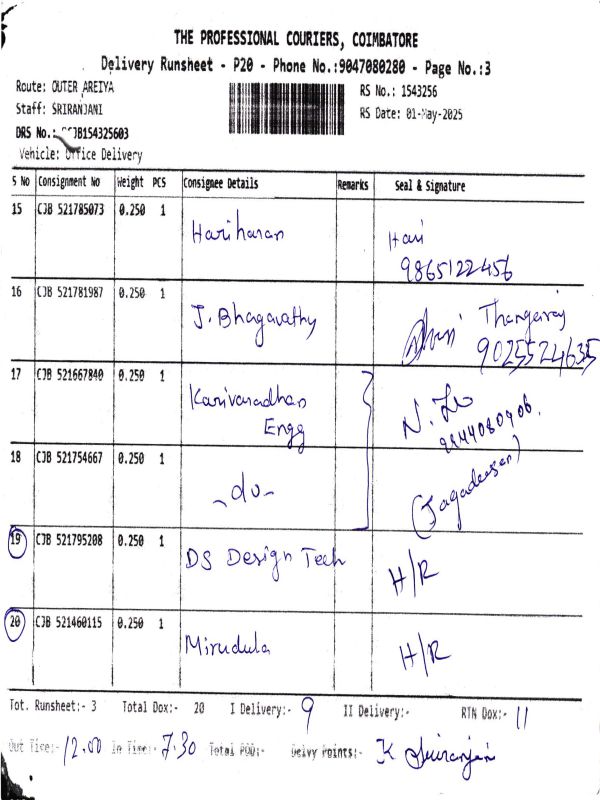 THE PROFESSIONAL COURIERS, COIMBATORE
Delivery Runsheet - P20 - Phone No.:9047080280 - Page No.:3
Route: OUTER AREIYA
RS No.: 1543256
Staff: SRIRANJANI
RS Date: 01-May-2025
DRS No.: CJB154325603
Vehicle: Office Delivery
S No Consignment No Weight PCS Consignee Details Remarks Seal & Signature
15 CJB 521785073 0.250 1 Hariharan Hari
9865122456
16 CJB 521781987 0.250 1 J. Bhagavathy Thangaraj
9025524635
17 CJB 521667840 0.250 1 Karivaradhan
Engg
9944080906.
18 CJB 521754667 0.250 1 -do- (Jagadeesan)
19 CJB 521795208 0.250 1 DS Design Tech H/R
20 CJB 521460115 0.250 1 Mirudula H/R
Tot. Runsheet:- 3 Total Dox:- 20 I Delivery:- 9 II Delivery:- RTN Dox:- 11
Out Time:- 12.00 In Time:- 7.30 Total POD:- Delvy Points:- K Sriranjani